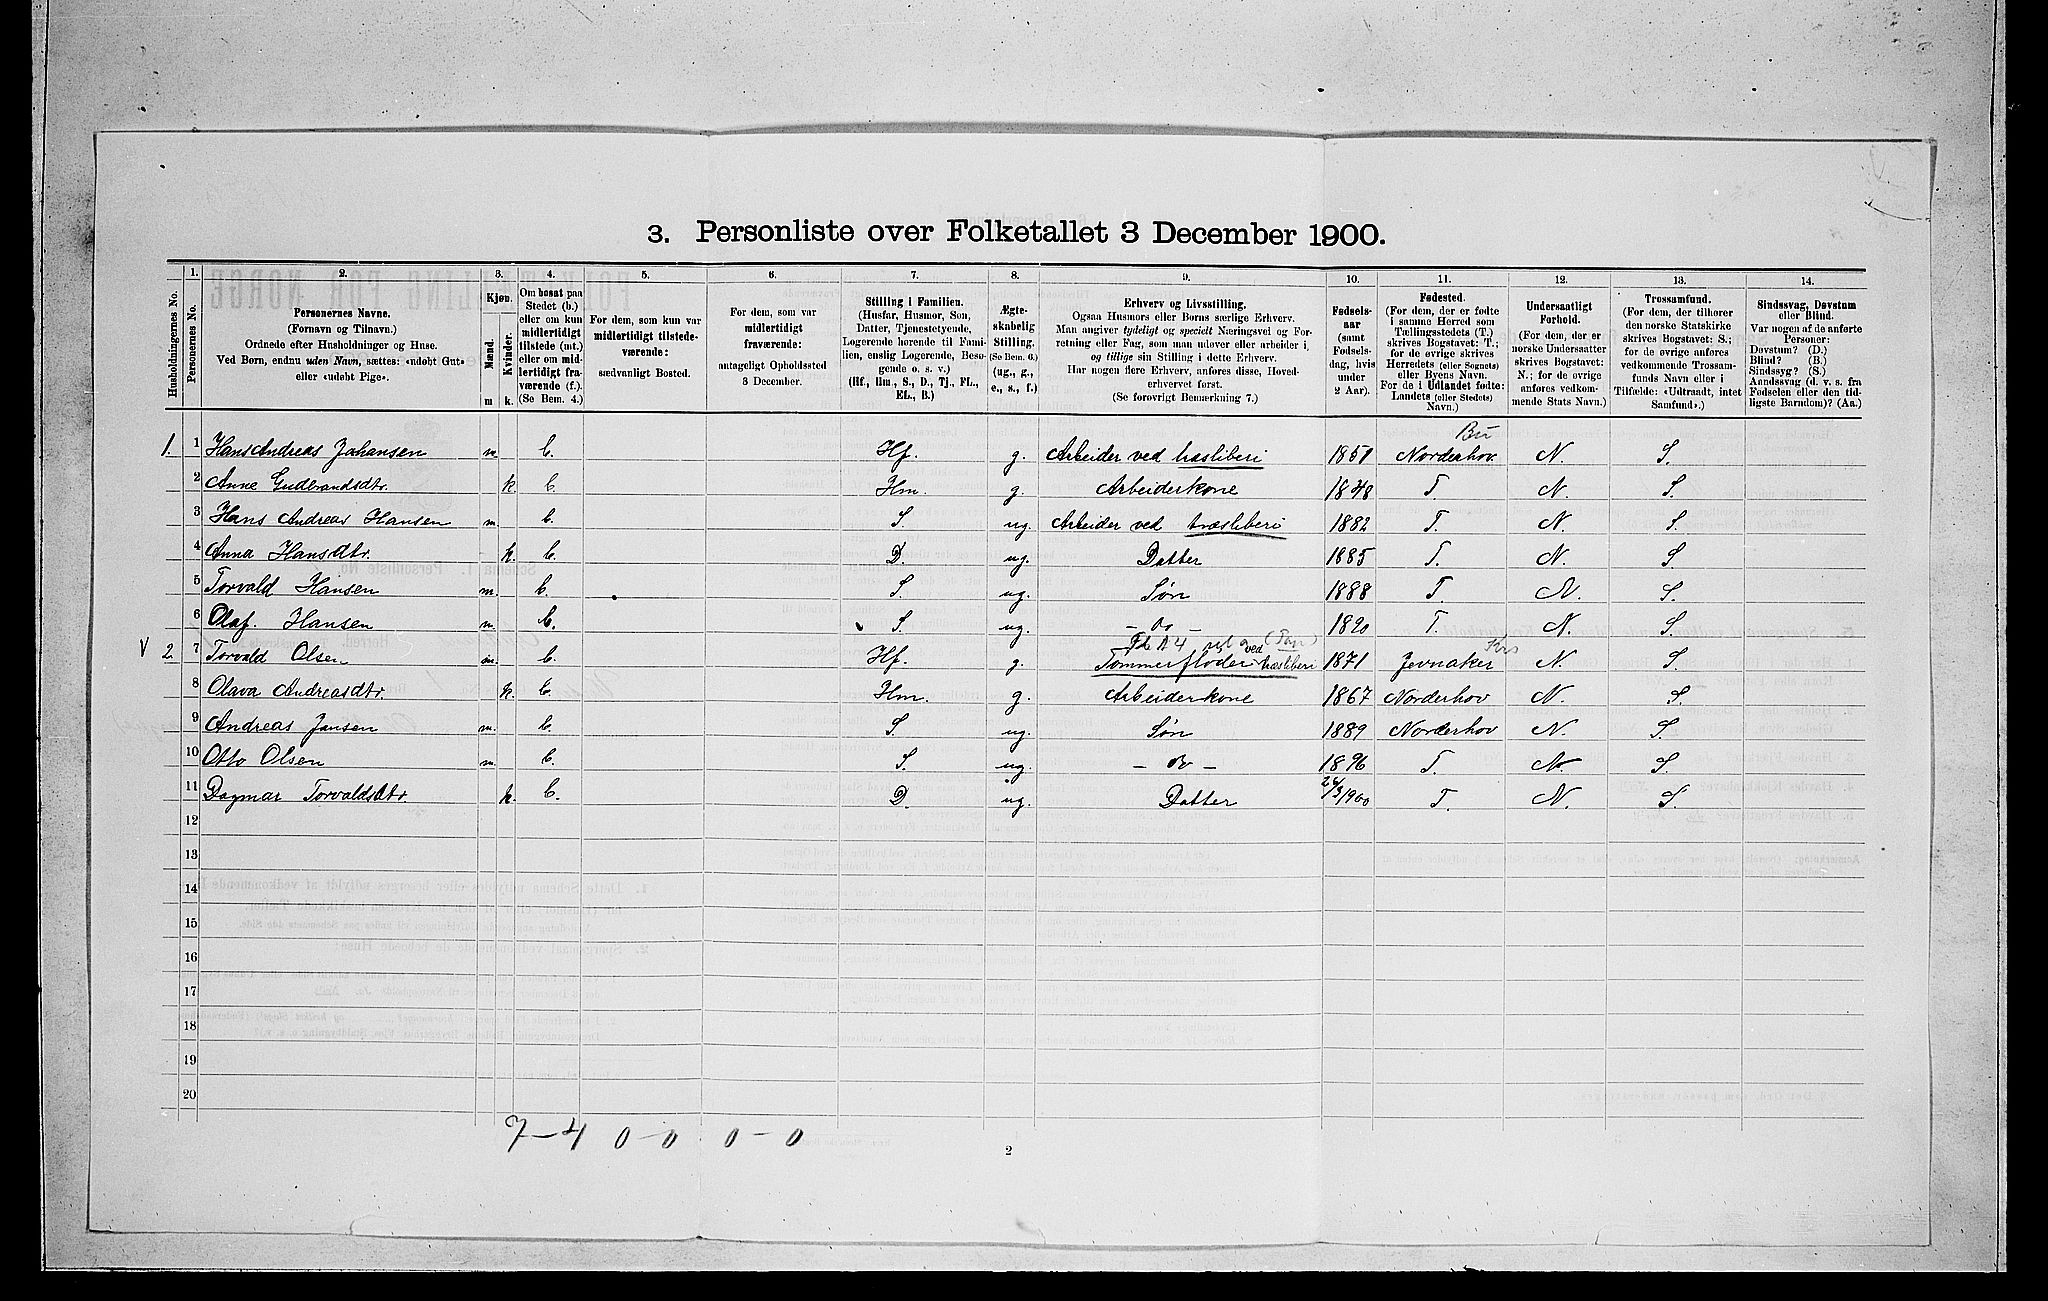 3. Personliste over Folketallet 3 December 1900.
1. 2. 3. 4. 5. 6. 7. 8. 9. 10. 11. 12. 13. 14.
Husholdningernes No.
Personernes No.
Personernes Navne.
(Fornavn og Tilnavn.)
Ordnede efter Husholdninger og Huse.
Ved Børn, endnu uden Navn, sættes: «udøbt Gut»
eller «udøbt Pige».
Kjøn.
Mænd.
Kvinder.
m k.
Om bosat paa
Stedet (b.)
eller om kun
midlertidigt
tilstede (mt.)
eller om mid-
lertidigt fra-
værende (f.).
(Se Bem. 4.)
For dem, som kun var
midlertidigt tilstede-
værende:
sædvanligt Bosted.
For dem, som var
midlertidigt
fraværende:
antageligt Opholdssted
3 December.
Stilling i Familien.
(Husfar, Husmor, Søn,
Datter, Tjenestetyende,
Logerende hørende til Fami-
lien, enslig Logerende, Besø-
gende o. s. v.)
(Hf., Hm., S., D., Tj., FL.,
EL., B.)
Ægte-
skabelig
Stilling.
(Se Bem. 6.)
(ug., g.,
e., s., f.)
Erhverv og Livsstilling.
Ogsaa Husmors eller Børns særlige Erhverv.
Man angiver tydeligt og specielt Næringsvei og For-
retning eller Fag, som man udøver eller arbeider i,
og tillige sin Stilling i dette Erhverv.
Har nogen flere Erhverv, anføres disse, Hoved-
erhvervet først.
(Se forøvrigt Bemærkning 7.)
Fødsels-
aar
(samt
Fødsels-
dag, hvis
under
2 Aar).
Fødested.
(For dem, der er fødte
i samme Herred som
Tællingsstedets (T.)
skrives Bogstavet: T.;
for de øvrige skrives
Herredets (eller Sognets)
eller Byens Navn.
For de i Udlandet fødte:
Landets (eller Stedets)
Navn.)
Undersaatligt
Forhold.
(For dem, der er
norske Undersaatter
skrives Bogstavet:
N.; for de øvrige
anføres vedkom-
mende Stats Navn.)
Trossamfund.
(For dem, der tilhører
den norske Statskirke
skrives Bogstavet: S.;
for de øvrige anføres
vedkommende Trossam-
funds Navn eller i
Tilfælde: «Udtraadt, intet
Samfund».)
Sindssvag, Døvstum
eller Blind.
Var nogen af de anførte
Personer:
Døvstum? (D.)
Blind? (B.)
Sindssyg? (S.)
Aandssvag (d. v. s. fra
Fødselen eller den tid-
ligste Barndom)? (Aa.)
Bu
1. 1 Hans Andreas Johansen m. b. Hf. g. Arbeider ved træsliberi 1851 Norderhov N. S.
2 Anne Gudbrandsdtr. k b. Hm. g. Arbeiderkone 1848 T. N. S.
3 Hans Andreas Hansen m. b. S. ug. Arbeider ved træsliberi 1882 T. N. S.
4 Anna Hansdtr. k. b. D. ug. Datter 1885 T. N. S
5 Torvald Hansen m. b. S. ug. Søn 1888 T. N. S.
6 Olaf. Hansen m. b. S. ug. – do – 1890 T. N. S.
V 2. 7 Torvald Olsen m. b. Hf. g. Tømmerfløder ved træsliberi 1871 Jevnaker N. S.
8 Olava Andreasdtr. k. b. Hm. g. Arbeiderkone 1867 Norderhov N. S.
9 Andreas Jansen m. b. S. ug. Søn 1889 Norderhov N. S.
10 Otto Olsen m. b. S. ug. – do – 1896 T. N. S.
11 Dagmar Torvaldsdtr. k. b. D. ug. Datter 1900 T. N. S.
12
13
14
15
16
17
18
19
20
7–4 0–0 0–0
2